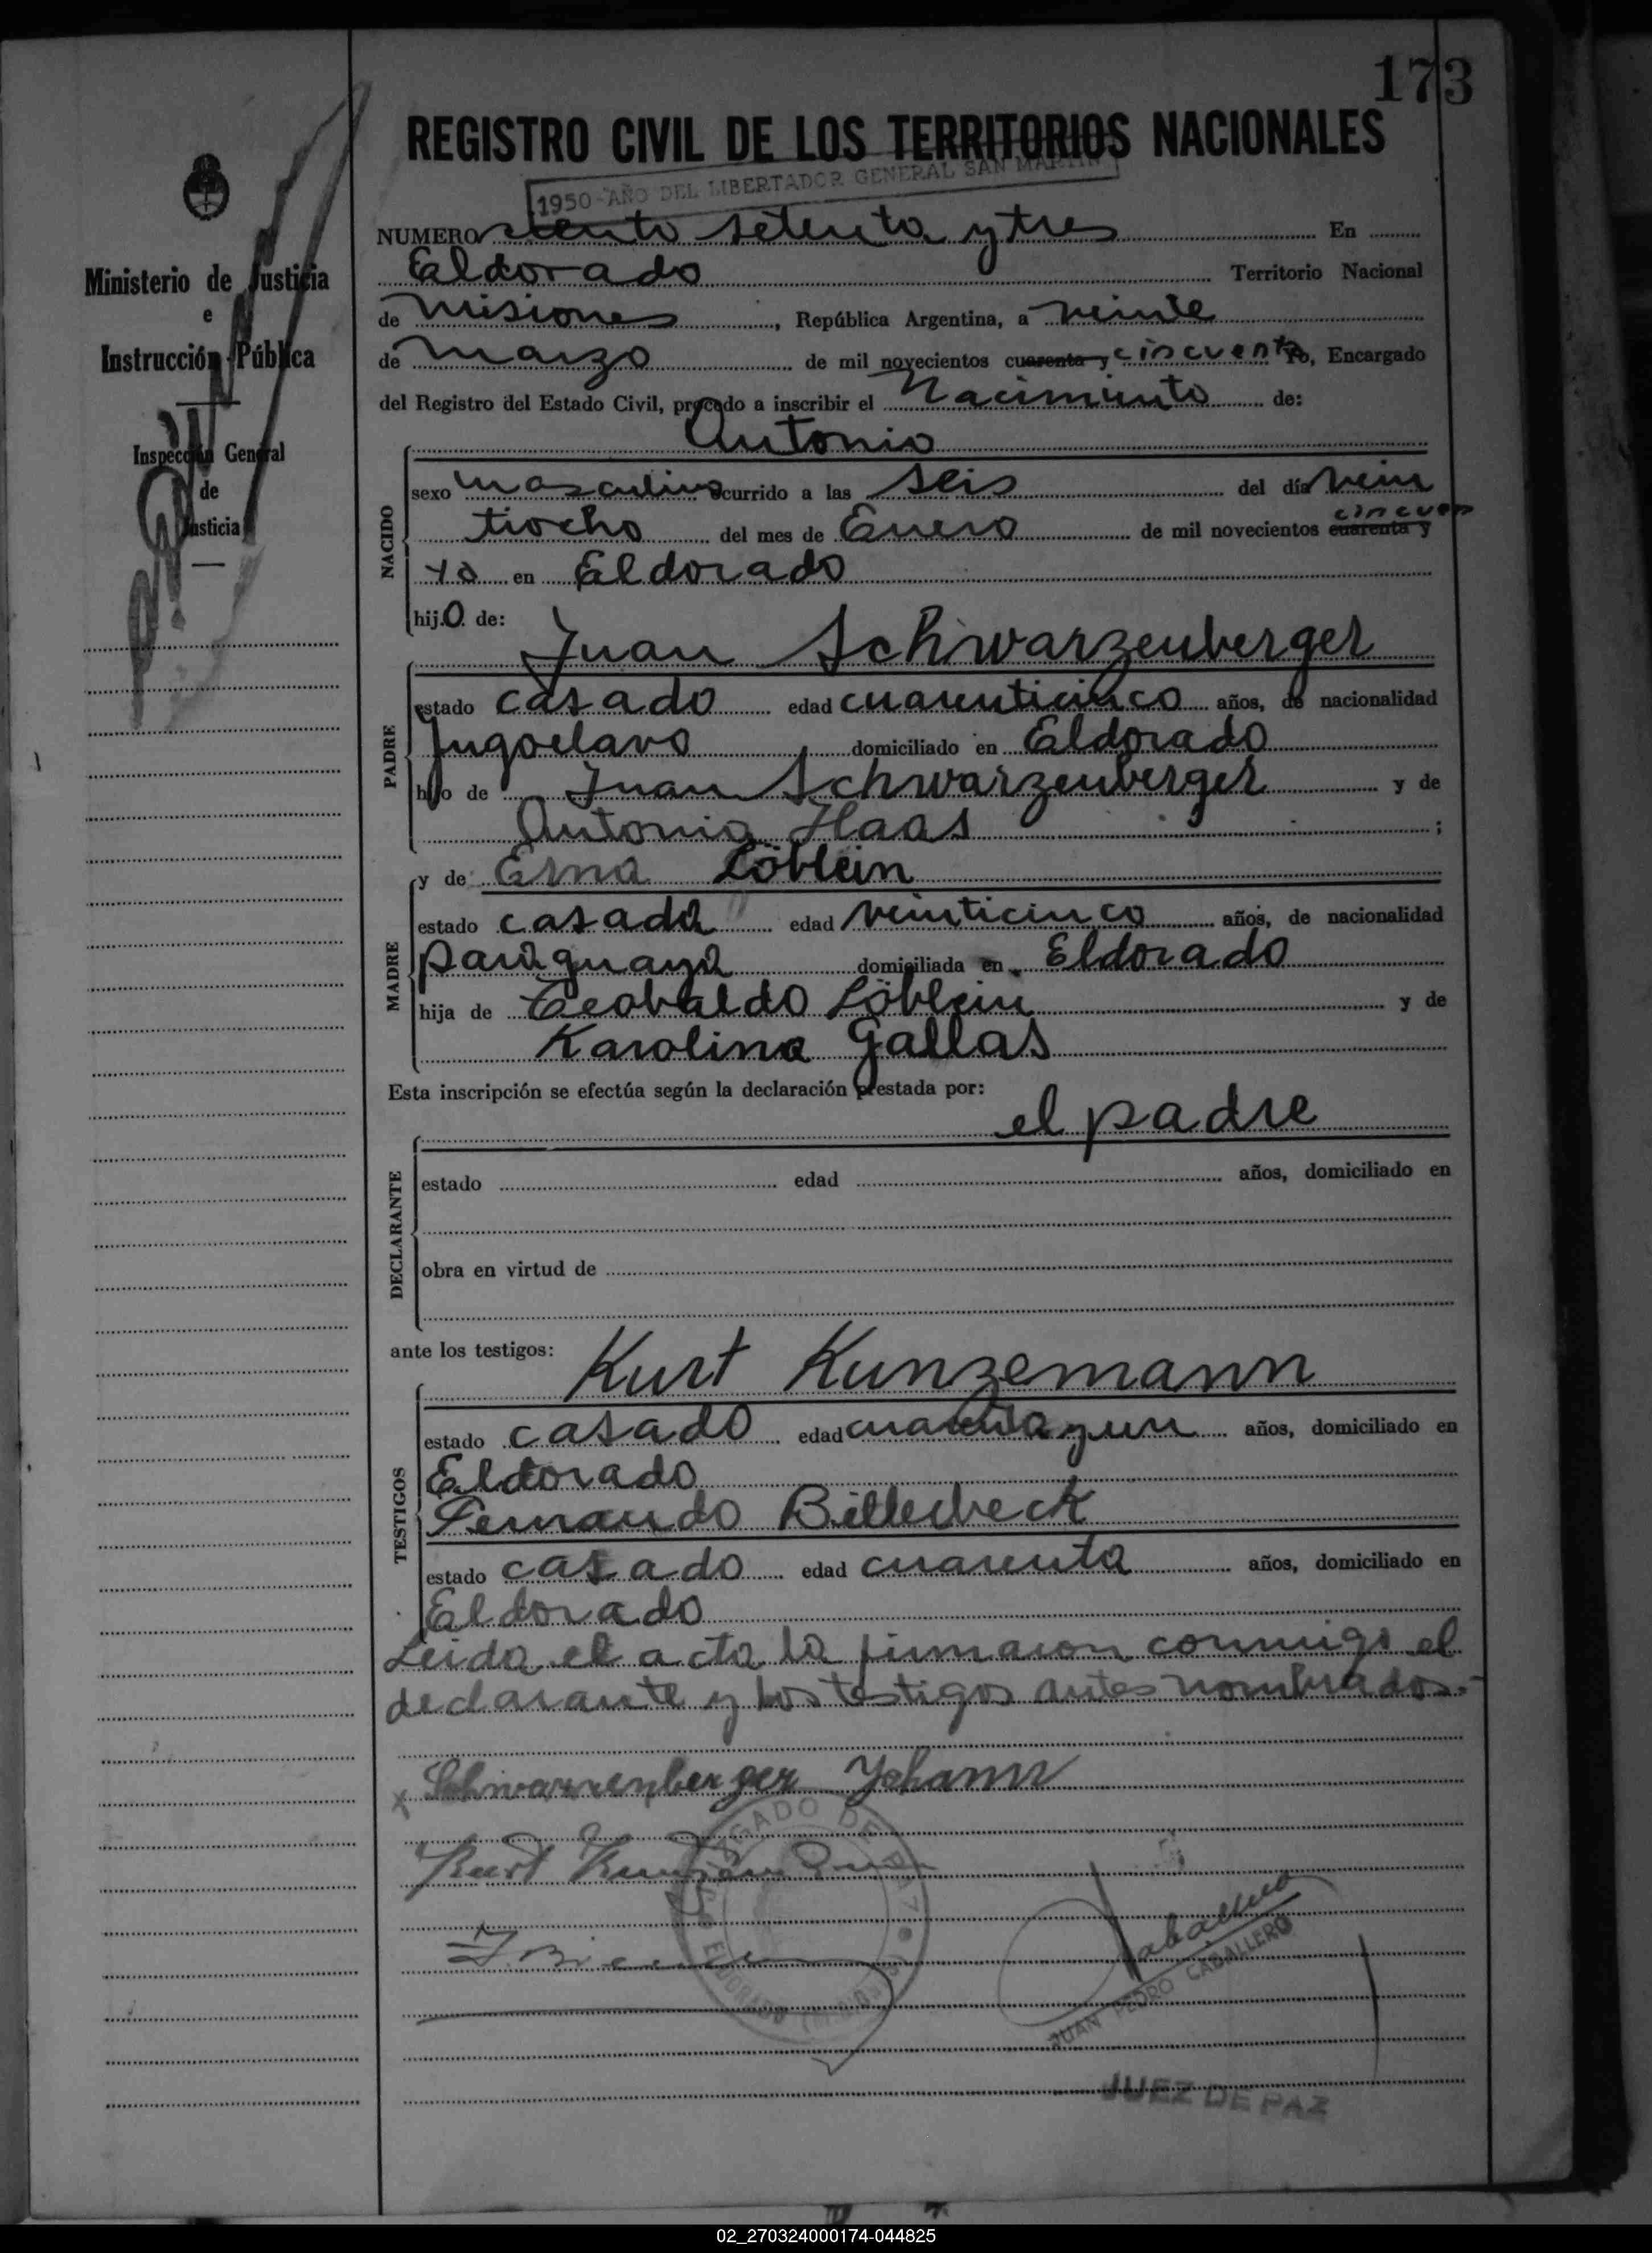 173
REGISTRO CIVIL DE LOS TERRITORIOS NACIONALES
1950 - AÑO DEL LIBERTADOR GENERAL SAN MARTIN
Ministerio de Justicia
e
Instrucción Pública
Inspección General
de
Justicia
NUMERO ciento setenta y tres En
Eldorado Territorio Nacional
de Misiones, República Argentina, a veinte
de Marzo de mil novecientos cuarenta y cincuenta Yo, Encargado
del Registro del Estado Civil, procedo a inscribir el Nacimiento de:
Antonio
NACIDO
sexo masculino ocurrido a las seis del día vein
tiocho del mes de Enero de mil novecientos cuarenta y cincuen
ta en Eldorado
hijo de:
Juan Schwarzenberger
PADRE
estado casado edad cuarenticinco años, de nacionalidad
Jugoelavo domiciliado en Eldorado
hijo de Juan Schwarzenberger y de
Antonia Haas ;
y de Erna Löblein
MADRE
estado casada edad veinticinco años, de nacionalidad
paraguaya domiciliada en Eldorado
hija de Teobaldo Löblein y de
Karolina Gallas
Esta inscripción se efectúa según la declaración prestada por:
el padre
DECLARANTE
estado edad años, domiciliado en
obra en virtud de
ante los testigos:
Kurt Kunzemann
TESTIGOS
estado casado edad cuarenta y un años, domiciliado en
Eldorado
Fernando Billerbeck
estado casado edad cuarenta años, domiciliado en
Eldorado
Leida el acta la firmaron conmigo el
declarante y los testigos antes nombrados.-
x Schwarzenberger Johann
Kurt
JUAN PEDRO CABALLERO
JUEZ DE PAZ
02_270324000174-044825